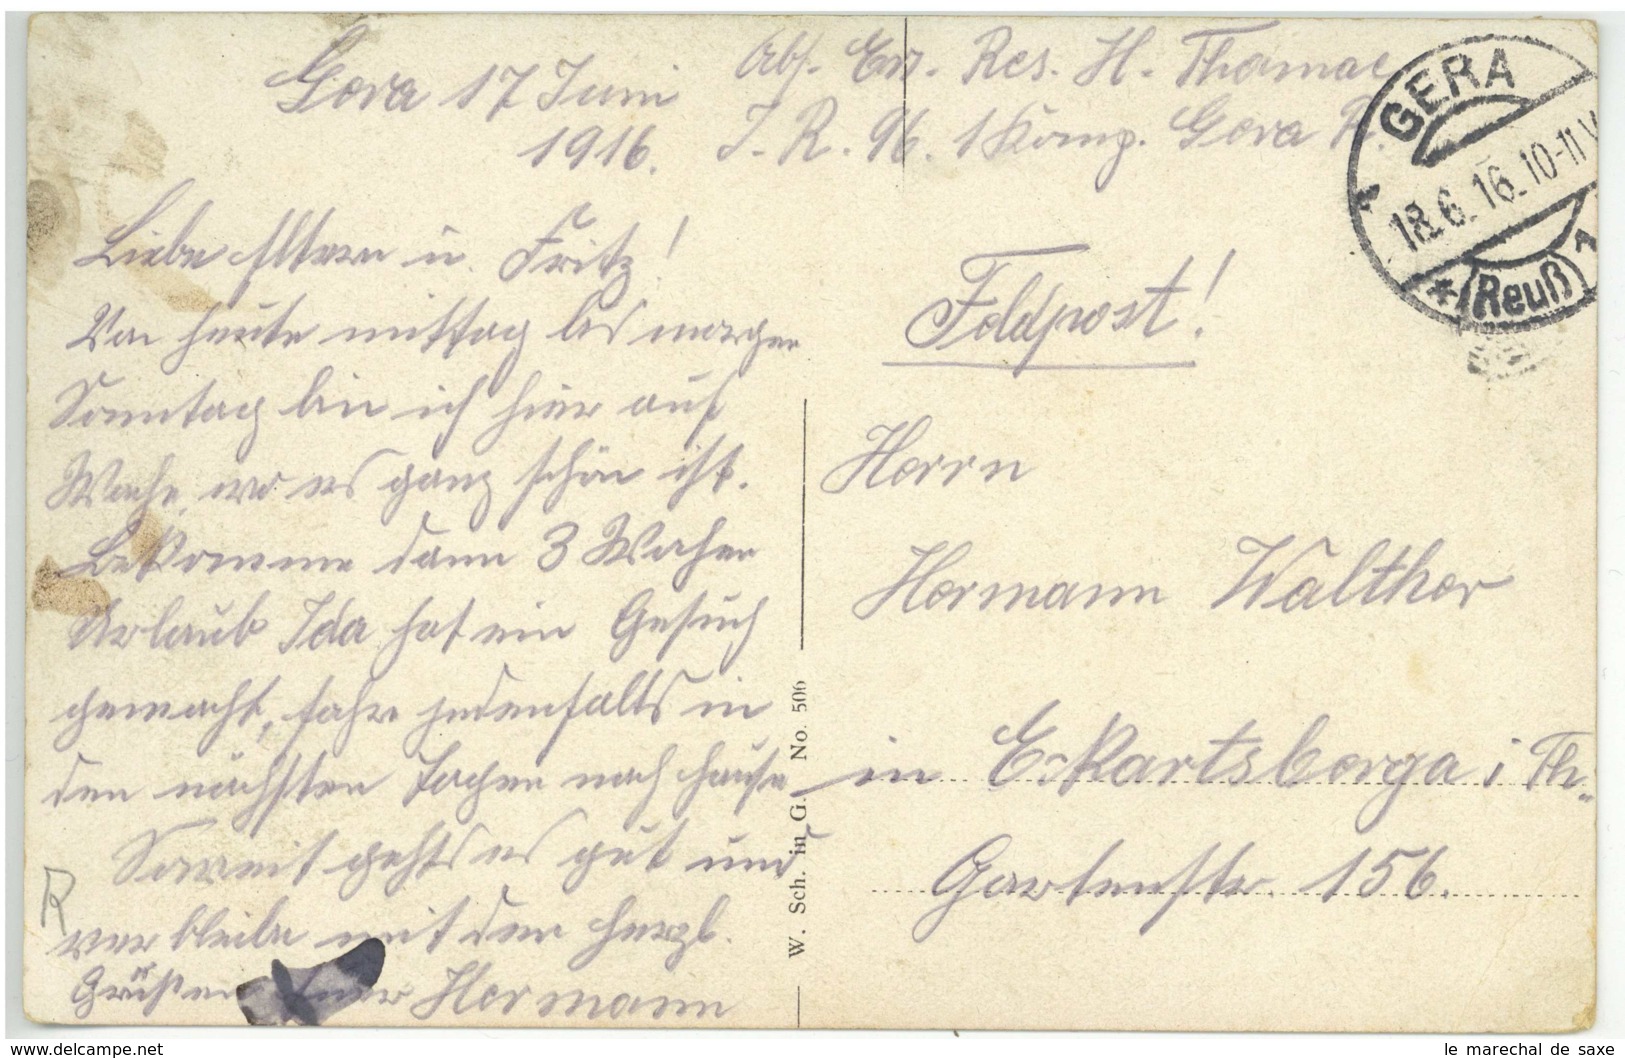 Gera 17 Juni
1916.
Abs. Ers. Res. H. Thomae
I. R. 96. 1 Komp. Gera R.
GERA
18.6.16. 10-11 V
(Reuß) 1
Liebe Eltern u. Fritz!
Von heute mittag bis morgen
Sonntag bin ich hier auf
Wache, wo es ganz schön ist.
Bekomme dann 3 Wochen
Urlaub Ida hat ein Gesuch
gemacht, fahre jedenfalls in
den nächsten Tagen nach Hause
Soweit gehts es gut und
verbleibe mit den herzl.
Grüßen Euer Hermann
R
W. Sch. in G. No. 506
Feldpost!
Herrn
Hermann Walther
in Eckartsberga i Th.
Gartenstr. 156.
le marechal de saxe
www.delcampe.net